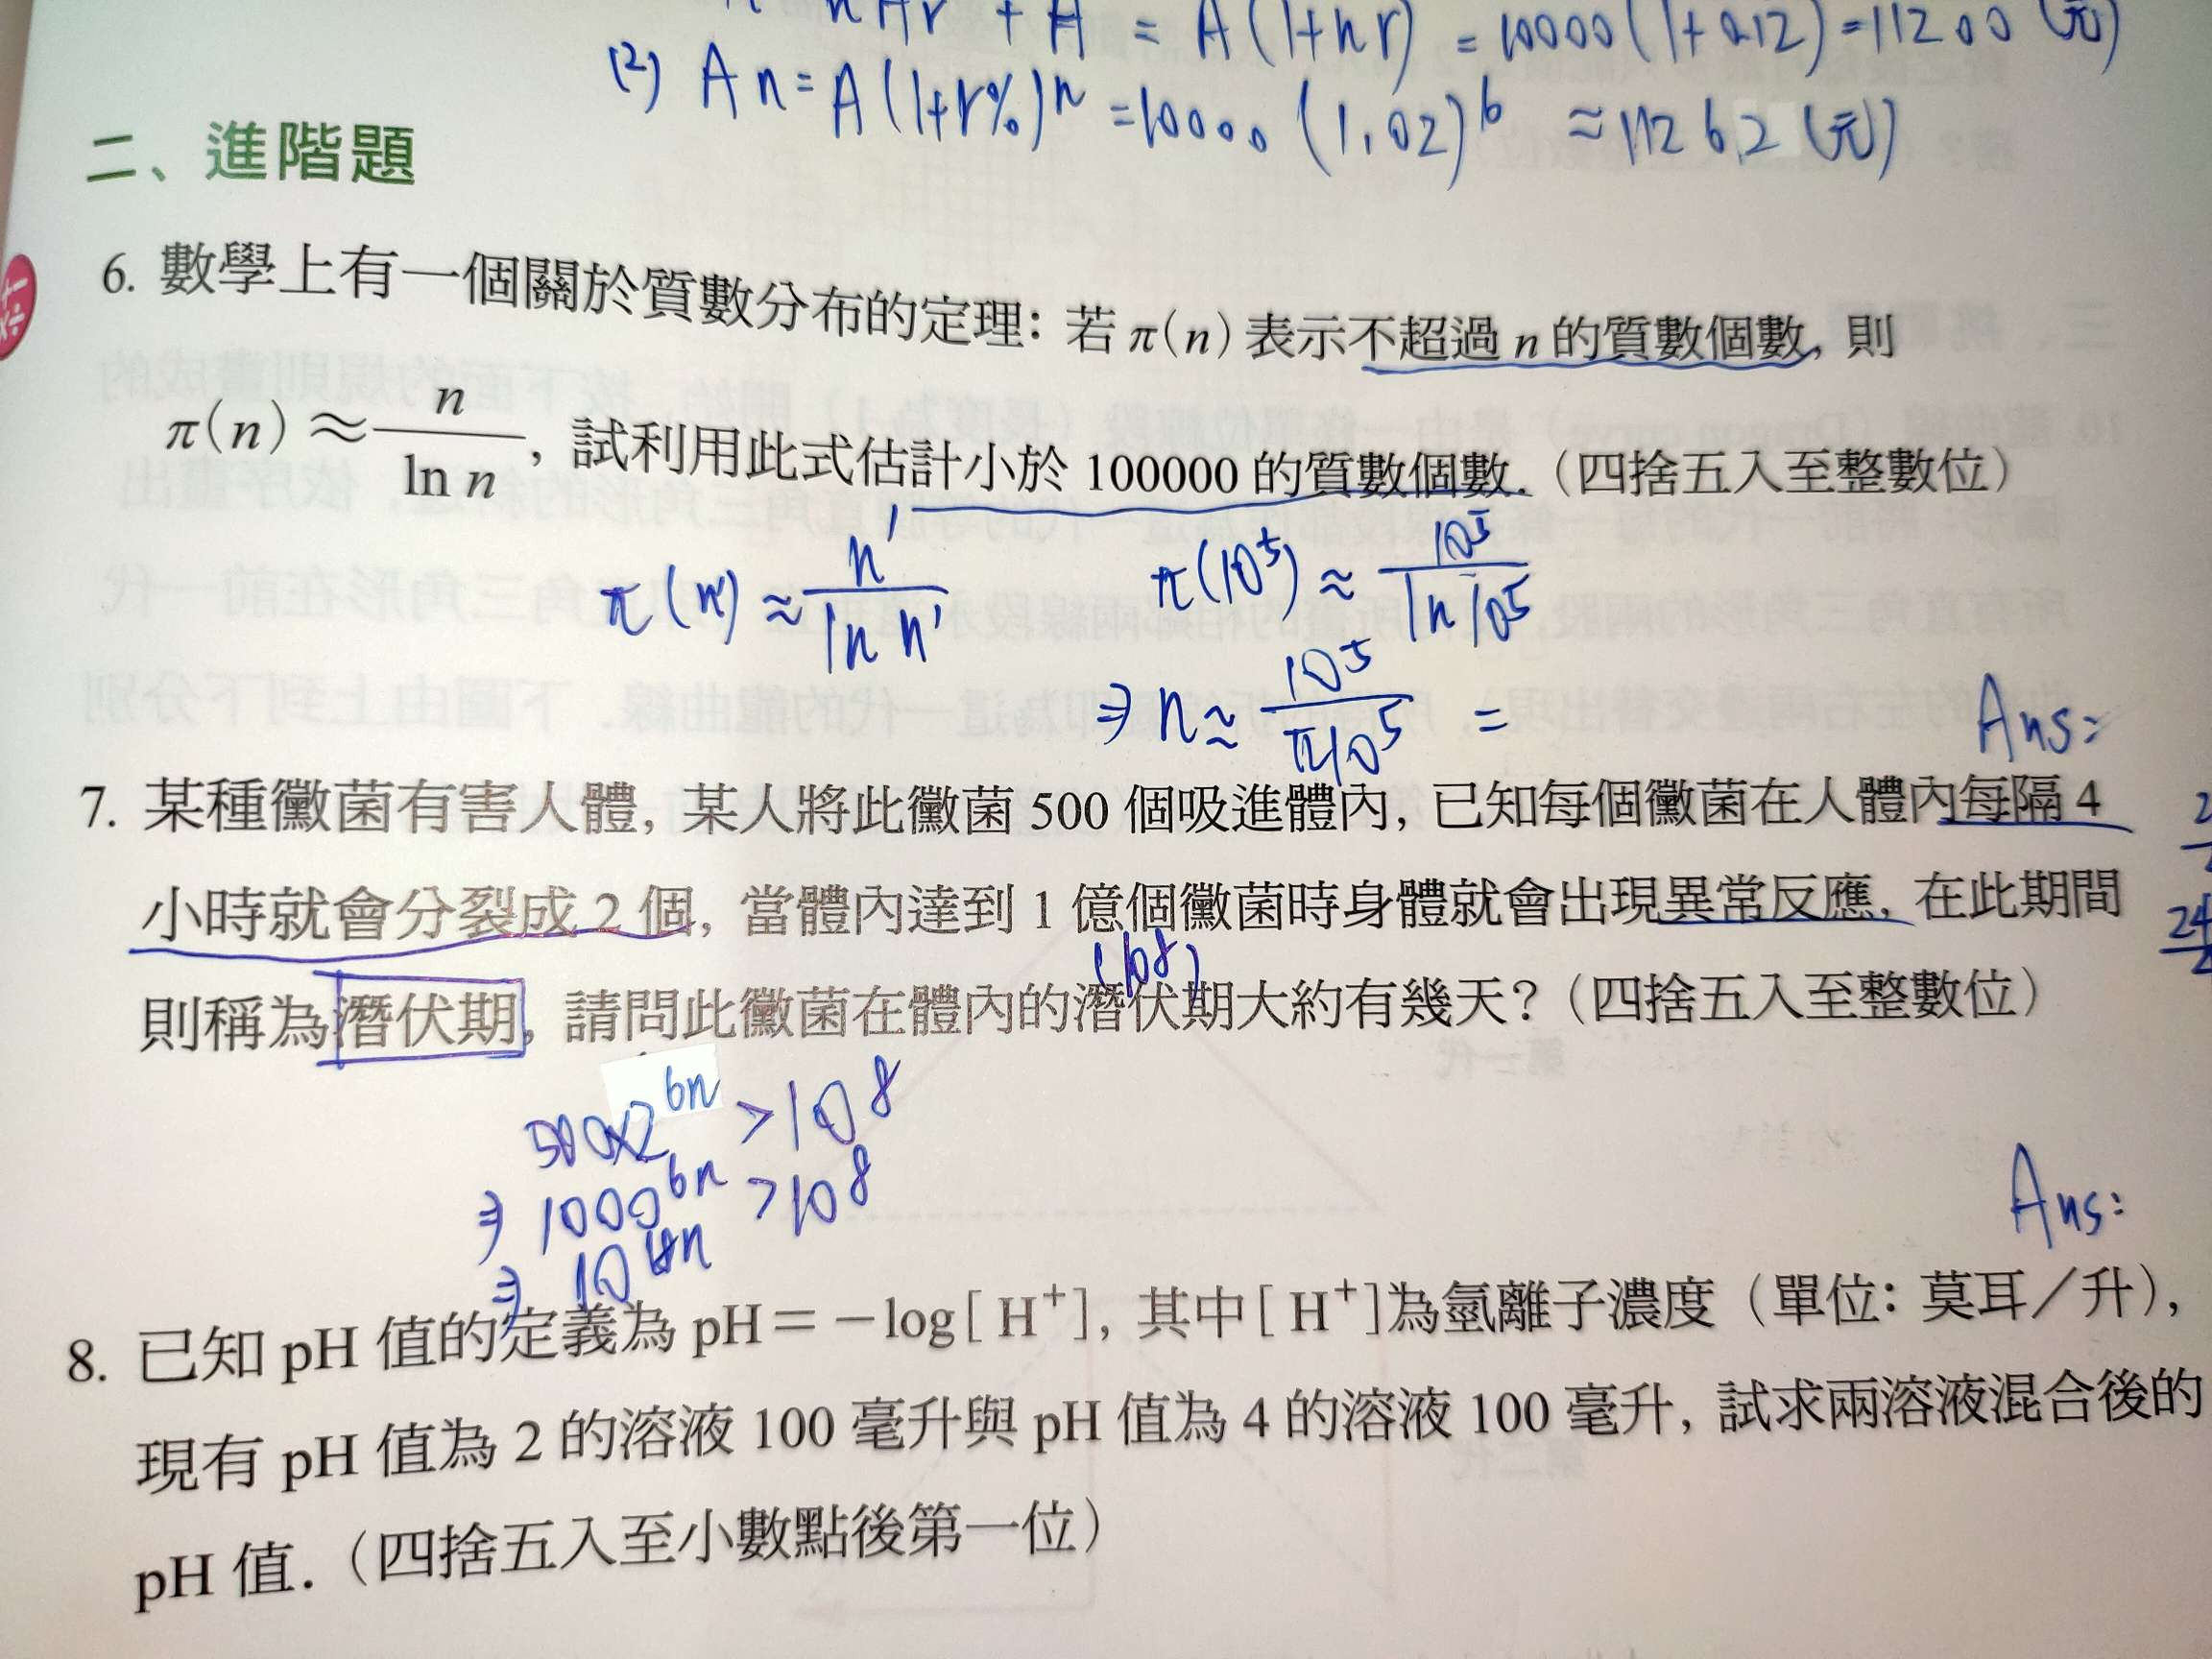 nAr + A = A(1+nr) = 10000(1+0.12)=11200 (元)
(2) An=A(1+r%)ⁿ=10000(1.02)⁶ ≈11262(元)
二、進階題
6. 數學上有一個關於質數分布的定理：若 π(n) 表示不超過 n 的質數個數，則
π(n)≈n/ln n，試利用此式估計小於 100000 的質數個數.（四捨五入至整數位）
π(n')≈n'/ln n' π(10⁵)≈10⁵/ln 10⁵
⇒ n≈10⁵/π10⁵ =
Ans=
7. 某種黴菌有害人體，某人將此黴菌 500 個吸進體內，已知每個黴菌在人體內每隔 4
小時就會分裂成 2 個，當體內達到 1 億個黴菌時身體就會出現異常反應，在此期間
(10⁸)
則稱為潛伏期，請問此黴菌在體內的潛伏期大約有幾天？（四捨五入至整數位）
500×2⁶ⁿ >10⁸
⇒ 1000⁶ⁿ >10⁸
⇒ 10¹⁸ⁿ
Ans:
8. 已知 pH 值的定義為 pH＝－log[ H⁺]，其中[ H⁺]為氫離子濃度（單位：莫耳／升），
現有 pH 值為 2 的溶液 100 毫升與 pH 值為 4 的溶液 100 毫升，試求兩溶液混合後的
pH 值.（四捨五入至小數點後第一位）